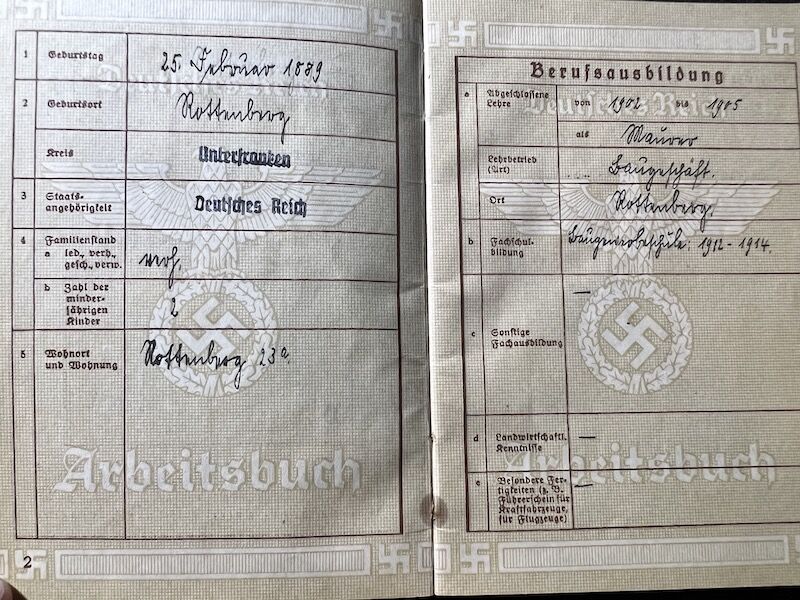 1 Geburtstag 25. Februar 1889
2 Geburtsort Rottenberg
Kreis Unterfranken
3 Staats-
angehörigkeit Deutsches Reich
4 Familienstand
a led., verh.,
gesch., verw. verh.
b Zahl der
minder-
jährigen
Kinder 2
5 Wohnort
und Wohnung Rottenberg 23a.
Deutsches Reich
Arbeitsbuch
2
Berufsausbildung
a Abgeschlossene
Lehre von 1902 bis 1905
als Maurer
Lehrbetrieb
(Art) Baugeschäft.
Ort Rottenberg.
b Fachschul-
bildung Baugewerbeschule: 1912 - 1914
c Sonstige
Fachausbildung —
d Landwirtschaftl.
Kenntnisse —
e Besondere Fer-
tigkeiten (z. B.
Führerschein für
Kraftfahrzeuge,
für Flugzeuge) —
Deutsches Reich
Arbeitsbuch